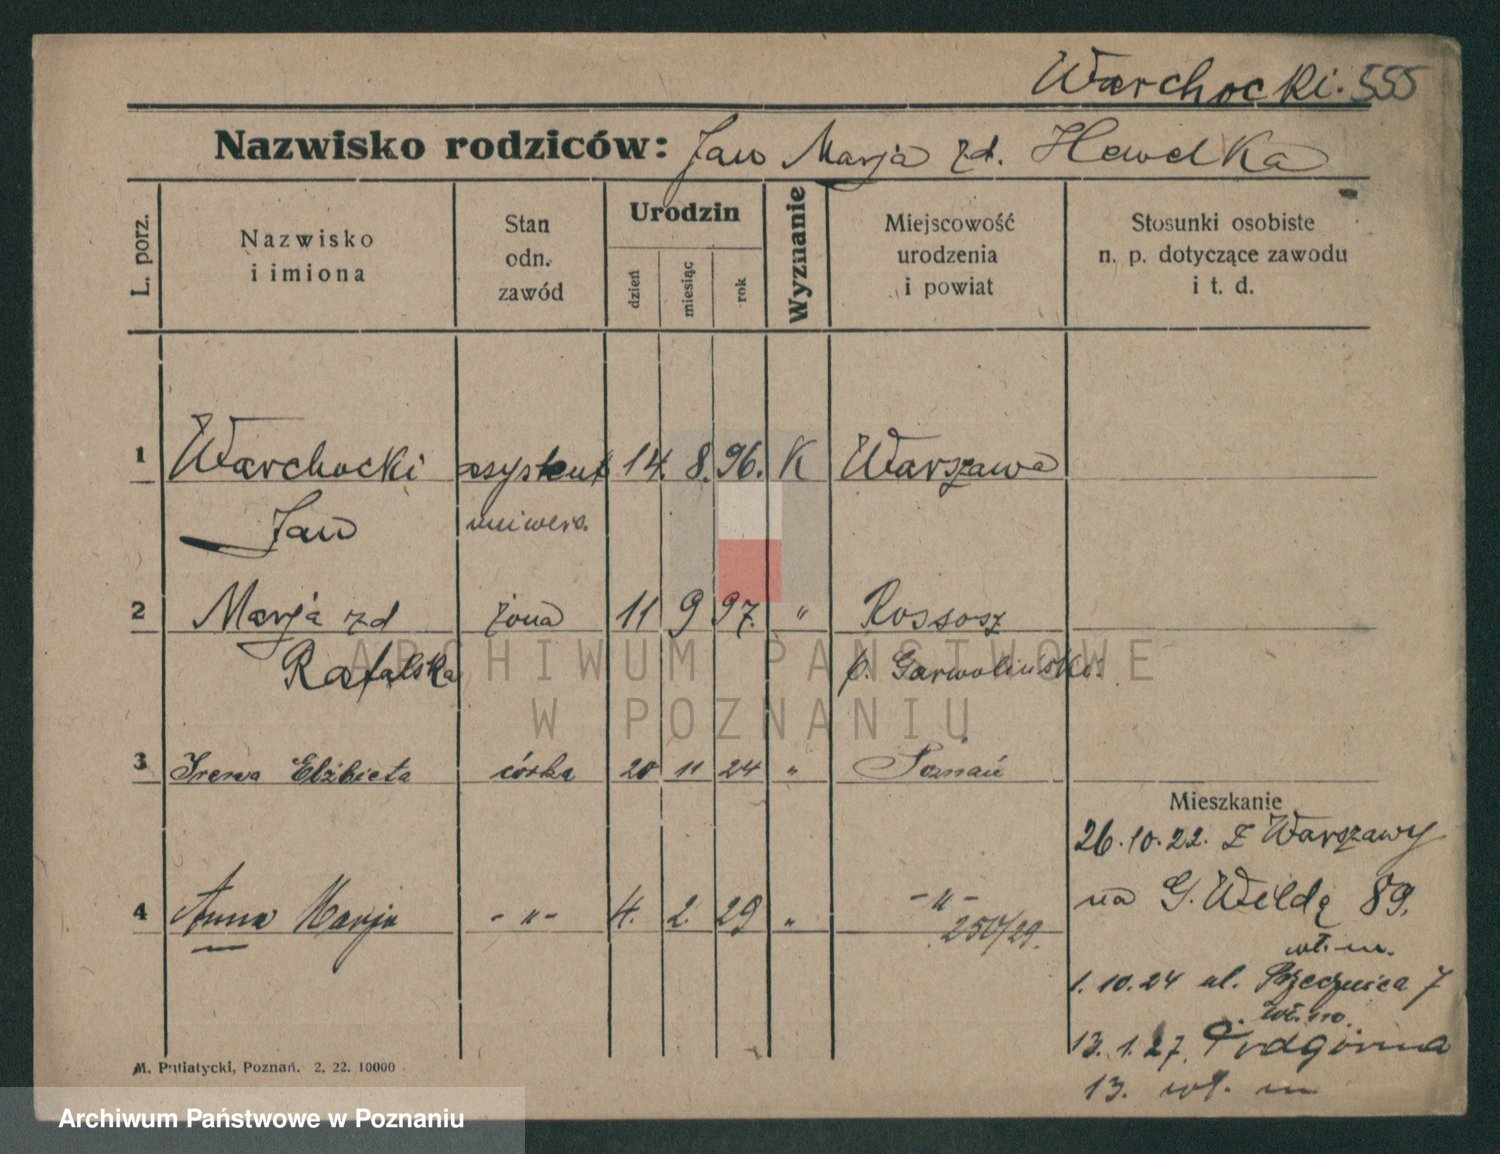 Warchocki. 555
Nazwisko rodziców: Jan Marja zd. Hawelka
L. porz.
Nazwisko
i imiona
Stan
odn.
zawód
Urodzin
dzień
miesiąc
rok
Wyznanie
Miejscowość
urodzenia
i powiat
Stosunki osobiste
n. p. dotyczące zawodu
i t. d.
1 Warchocki asystent 14. 8. 96. K Warszawa
Jan uniwers.
2 Marja zd żona 11 9 97. " Rossosz
Rafalska p. Garwoliński.
3 Irena Elżbieta córka 20 11 24 " Poznań
4 Anna Marja - " - 4. 2. 29 " - " -
250/29.
Mieszkanie
26.10.22. z Warszawy
na G. Wildę 89.
wł. m.
1.10.24 ul. Przecznica 7
wł. m.
13.1.27. Podgórna
13. wł. m
M. Putiatycki, Poznań. 2, 22. 10000
ARCHIWUM PAŃSTWOWE
W POZNANIU
Archiwum Państwowe w Poznaniu